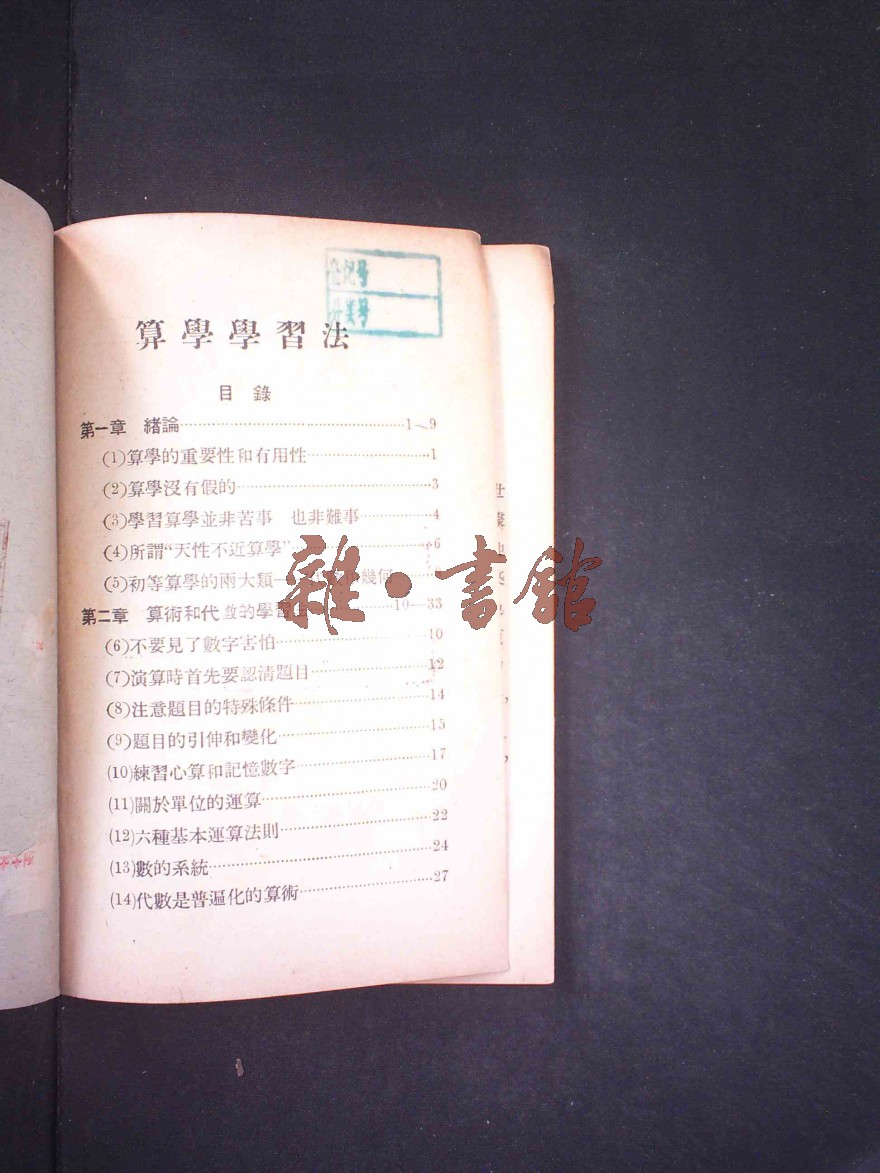 登記号
分类号
算學學習法
目錄
第一章 緒論 1—9
(1)算學的重要性和有用性 1
(2)算學沒有假的 3
(3)學習算學並非苦事 也非難事 4
(4)所謂“天性不近算學” 6
(5)初等算學的兩大類— 幾何
第二章 算術和代數的學習 10—33
(6)不要見了數字害怕 10
(7)演算時首先要認清題目 12
(8)注意題目的特殊條件 14
(9)題目的引伸和變化 15
(10)練習心算和記憶數字 17
(11)關於單位的運算 20
(12)六種基本運算法則 22
(13)數的系統 24
(14)代數是普遍化的算術 27
雜·書館